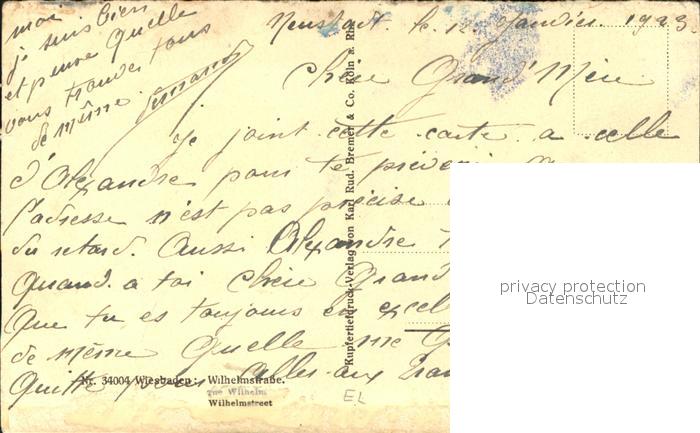 Neustadt le 12 Janvier 1923.
Chère Grand'Mère
Je joint cette carte a celle
d'Alexandre pour te prévenir
l'adresse n'est pas précise
du retard. Aussi Alexandre
Quand a toi Chère Grand
Que tu es toujours en excel
de même Quelle me
Quitte pour aller aux
moi
je suis bien
et pense Quelle
vous trouver tous
de même.
Kupfertiefdruck-Verlag von Karl Rud. Bremer & Co. Köln a. Rh.
privacy protection
Datenschutz
Nr. 34004 Wiesbaden: Wilhelmstraße.
rue Wilhelm
Wilhelmstreet
EL